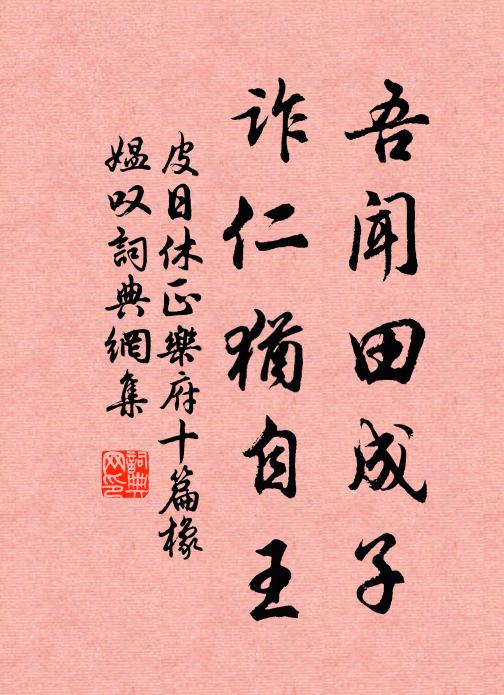 吾闻田成子
诈仁犹自王
皮日休正樂府十篇橡
媼叹詞典網集
詞典网印